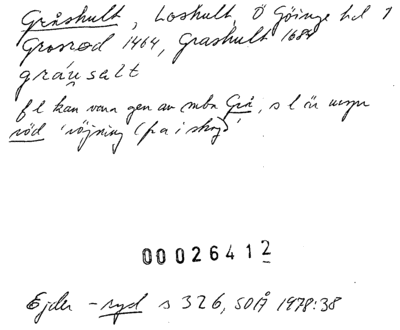 Gråshult, Loshult, Ö Göinge hd 1
Grosrod 1464, Grashult 1684
gráu̯salt
f l kan vara gen av mbn Grå, s l är urspr
röd 'röjning (på i skog)'
00026412
Ejder -ryd s 326, SOÅ 1978:38